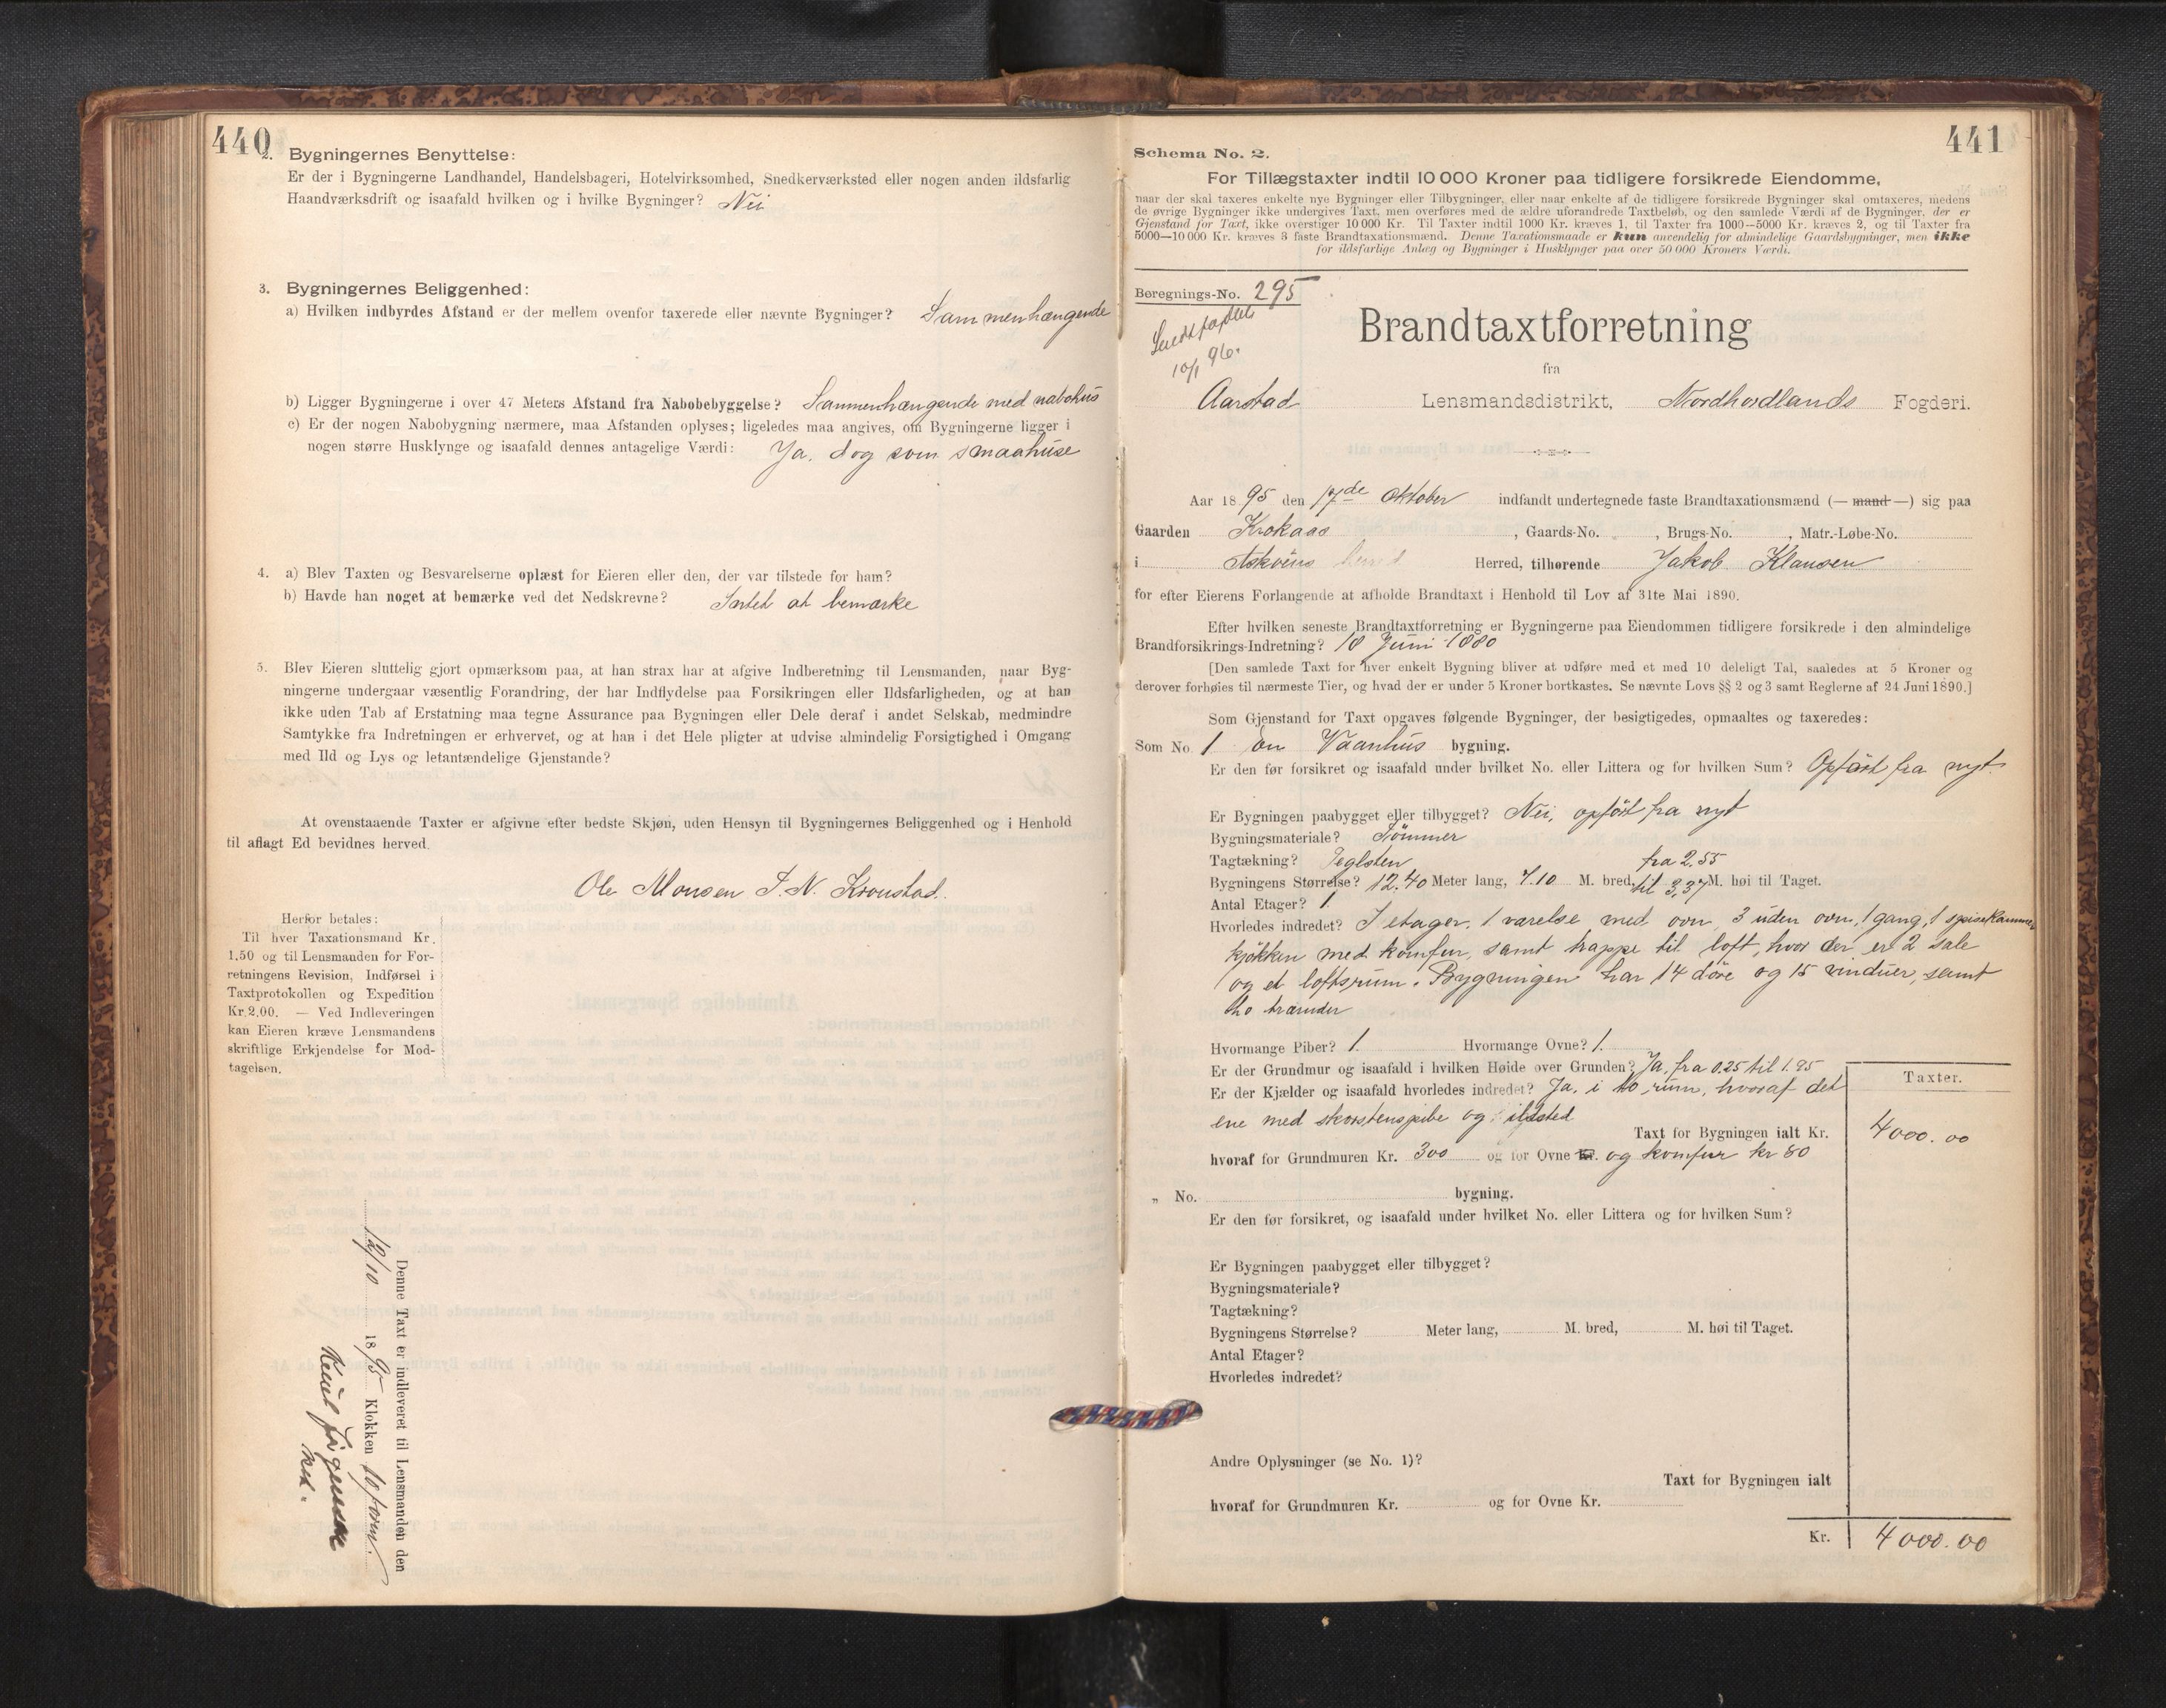 440
2. Bygningernes Benyttelse:
Er der i Bygningerne Landhandel, Handelsbageri, Hotelvirksomhed, Snedkerværksted eller nogen anden ildsfarlig
Haandværksdrift og isaafald hvilken og i hvilke Bygninger? Nei
3. Bygningernes Beliggenhed:
a) Hvilken indbyrdes Afstand er der mellem ovenfor taxerede eller nævnte Bygninger? Sammenhængende
b) Ligger Bygningerne i over 47 Meters Afstand fra Nabobebyggelse? Sammenhængende med nabohus
c) Er der nogen Nabobygning nærmere, maa Afstanden oplyses; ligeledes maa angives, om Bygningerne ligger i
nogen større Husklynge og isaafald dennes antagelige Værdi: Ja, dog som smaahuse
4. a) Blev Taxten og Besvarelserne oplæst for Eieren eller den, der var tilstede for ham?
b) Havde han noget at bemærke ved det Nedskrevne? Intet at bemærke
5. Blev Eieren sluttelig gjort opmærksom paa, at han strax har at afgive Indberetning til Lensmanden, naar Byg-
ningerne undergaar væsentlig Forandring, der har Indflydelse paa Forsikringen eller Ildsfarligheden, og at han
ikke uden Tab af Erstatning maa tegne Assurance paa Bygningen eller Dele deraf i andet Selskab, medmindre
Samtykke fra Indretningen er erhvervet, og at han i det Hele pligter at udvise almindelig Forsigtighed i Omgang
med Ild og Lys og letantændelige Gjenstande?
At ovenstaaende Taxter er afgivne efter bedste Skjøn, uden Hensyn til Bygningernes Beliggenhed og i Henhold
til aflagt Ed bevidnes herved.
Ole Monsen J. N. Kronstad.
Herfor betales:
Til hver Taxationsmand Kr.
1.50 og til Lensmanden for For-
retningens Revision, Indførsel i
Taxtprotokollen og Expedition
Kr. 2.00. — Ved Indleveringen
kan Eieren kræve Lensmandens
skriftlige Erkjendelse for Mod-
tagelsen.
Denne Taxt er indleveret til Lensmanden den
19/10 1895 Klokken 10 form.
441
Schema No. 2.
For Tillægstaxter indtil 10 000 Kroner paa tidligere forsikrede Eiendomme,
naar der skal taxeres enkelte nye Bygninger eller Tilbygninger, eller naar enkelte af de tidligere forsikrede Bygninger skal omtaxeres, medens
de øvrige Bygninger ikke undergives Taxt, men overføres med de ældre uforandrede Taxtbeløb, og den samlede Værdi af de Bygninger, der er
Gjenstand for Taxt, ikke overstiger 10 000 Kr. Til Taxter indtil 1000 Kr. kræves 1, til Taxter fra 1000—5000 Kr. kræves 2, og til Taxter fra
5000—10 000 Kr. kræves 3 faste Brandtaxationsmænd. Denne Taxationsmaade er kun anvendelig for almindelige Gaardsbygninger, men ikke
for ildsfarlige Anlæg og Bygninger i Husklynger paa over 50 000 Kroners Værdi.
Beregnings-No. 295
10/1 96.
Brandtaxtforretning
fra
Aarstad Lensmandsdistrikt, Nordhordlands Fogderi.
Aar 1895 den 17de Oktober indfandt undertegnede faste Brandtaxationsmænd (— mand —) sig paa
Gaarden Krokaas , Gaards-No. , Brugs-No. , Matr.-Løbe-No.
i Askøens Herred, tilhørende Jakob Klausen
for efter Eierens Forlangende at afholde Brandtaxt i Henhold til Lov af 31te Mai 1890.
Efter hvilken seneste Brandtaxtforretning er Bygningerne paa Eiendommen tidligere forsikrede i den almindelige
Brandforsikrings-Indretning? 18 Juni 1880
[Den samlede Taxt for hver enkelt Bygning bliver at udføre med et med 10 deleligt Tal, saaledes at 5 Kroner og
derover forhøies til nærmeste Tier, og hvad der er under 5 Kroner bortkastes. Se nævnte Lovs §§ 2 og 3 samt Reglerne af 24 Juni 1890.]
Som Gjenstand for Taxt opgaves følgende Bygninger, der besigtigedes, opmaaltes og taxeredes:
Som No. 1 en Vaanhus bygning.
Er den før forsikret og isaafald under hvilket No. eller Littera og for hvilken Sum? Opført fra nyt.
Er Bygningen paabygget eller tilbygget? Nei, opført fra nyt
Bygningsmateriale? Tömmer
Tagtækning? Teglsten
Bygningens Størrelse? 12.40 Meter lang, 7.10 M. bred, fra 2.55 til 3,37 M. høi til Taget.
Antal Etager? 1
Hvorledes indredet? I etager, 1 værelse med ovn, 3 uden ovn, 1 gang, 1 spisekammer
kjøkken med komfur, samt trappe til loft, hvor der er 2 sale
og et loftsrum. Bygningen har 14 døre og 15 vinduer, samt
to
Hvormange Piber? 1. Hvormange Ovne? 1.
Er der Grundmur og isaafald i hvilken Høide over Grunden? Ja, fra 0.25 til 1.95
Er der Kjælder og isaafald hvorledes indredet? Ja, i to rum, hvoraf det
ene med skorstenspibe og ildsted
Taxter.
Taxt for Bygningen ialt Kr. 4000.00
hvoraf for Grundmuren Kr. 300 og for Ovne Kr. og komfur kr 80
„ No. bygning.
Er den før forsikret, og isaafald under hvilket No. eller Littera og for hvilken Sum?
Er Bygningen paabygget eller tilbygget?
Bygningsmateriale?
Tagtækning?
Bygningens Størrelse? Meter lang, M. bred, M. høi til Taget.
Antal Etager?
Hvorledes indredet?
Andre Oplysninger (se No. 1)?
Taxt for Bygningen ialt
hvoraf for Grundmuren Kr. og for Ovne Kr.
Kr. 4000.00